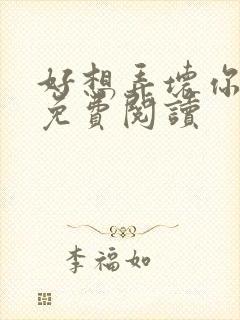 好想弄壞你
免費閱讀
李福如